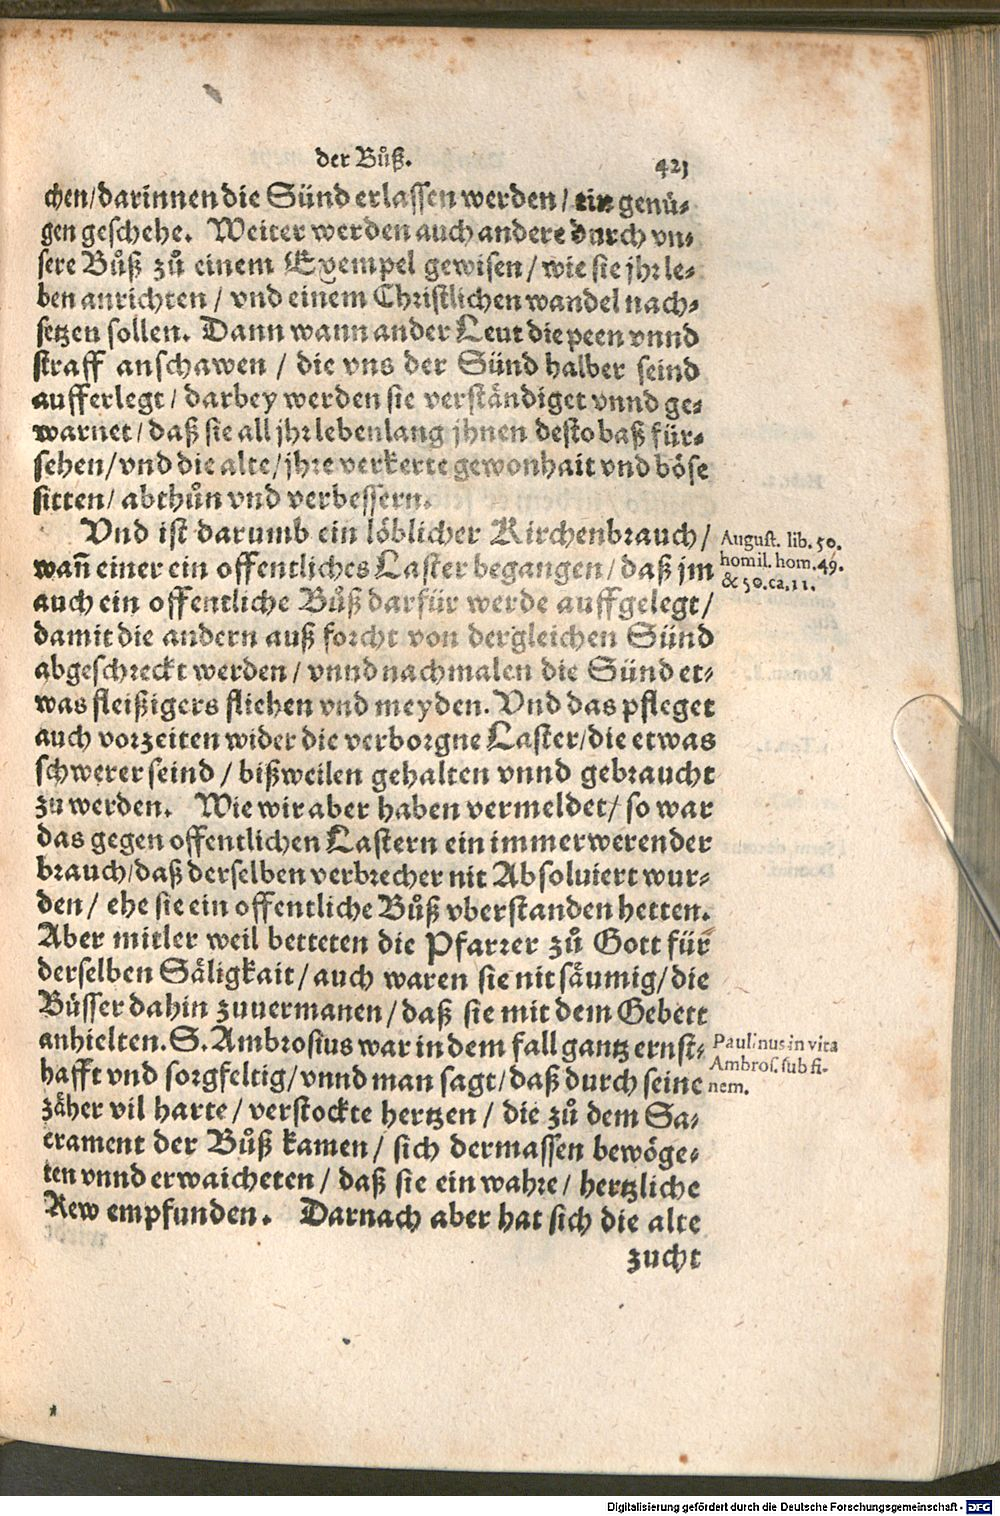 der Bůß.
423
chen/darinnen die Sünd erlassen werden/ ein genü-
gen geschehe. Weiter werden auch andere durch vn-
sere Bůß zů einem Exempel gewisen/ wie sie jhr le-
ben anrichten/ vnd einem Christlichen wandel nach-
setzen sollen. Dann wann ander Leut die peen vnnd
straff anschawen/ die vns der Sünd halber seind
aufferlegt/ darbey werden sie verständiget vnnd ge-
warnet/ daß sie all jhr lebenlang jhnen desto baß für-
sehen/ vnd die alte/ jhre verkerte gewonhait vnd böse
sitten/ abthůn vnd verbessern.
Vnd ist darumb ein löblicher Kirchenbrauch/
wañ einer ein offentliches Laster begangen/ daß jm
auch ein offentliche Bůß darfür werde auffgelegt/
damit die andern auß forcht von dergleichen Sünd
abgeschreckt werden/ vnnd nachmalen die Sünd et-
was fleißigers fliehen vnd meyden. Vnd das pfleget
auch vorzeiten wider die verborgne Laster/ die etwas
schwerer seind/ bißweilen gehalten vnnd gebraucht
zu werden. Wie wir aber haben vermeldet/ so war
das gegen offentlichen Lastern ein immerwerender
brauch/ daß derselben verbrecher nit Absoluiert wur-
den/ ehe sie ein offentliche Bůß vberstanden hetten.
Aber mitler weil betteten die Pfarrer zů Gott für
derselben Säligkait/ auch waren sie nit säumig/ die
Büsser dahin zuuermanen/ daß sie mit dem Gebett
anhielten. S. Ambrosius war in dem fall gantz ernst-
hafft vnd sorgfeltig/ vnnd man sagt/ daß durch seine
zäher vil harte/ verstockte hertzen/ die zů dem Sa-
crament der Bůß kamen/ sich dermassen bewöge-
ten vnnd erwaicheten/ daß sie ein wahre/ hertzliche
Rew empfunden. Darnach aber hat sich die alte
zucht
August. lib. 50.
homil. hom. 49.
& 50. ca. 11.
Paulinus in vita
Ambros. sub fi-
nem.
Digitalisierung gefördert durch die Deutsche Forschungsgemeinschaft - DFG